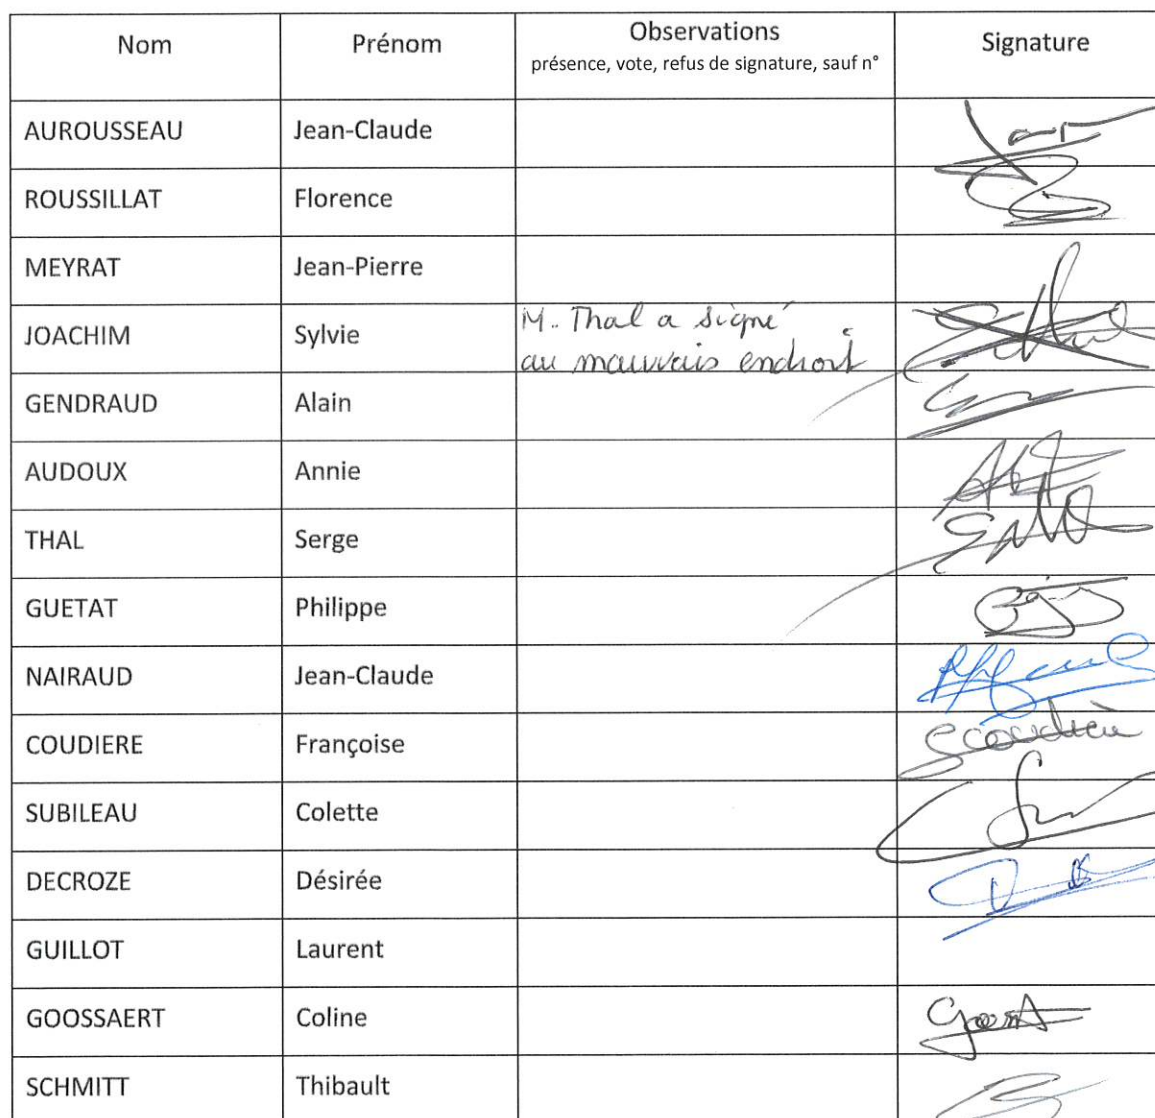 Nom Prénom Observations Signature
présence, vote, refus de signature, sauf n°
AUROUSSEAU Jean-Claude
ROUSSILLAT Florence
MEYRAT Jean-Pierre
JOACHIM Sylvie M. Thal a signé
au mauvais endroit
GENDRAUD Alain
AUDOUX Annie
THAL Serge
GUETAT Philippe
NAIRAUD Jean-Claude
COUDIERE Françoise
SUBILEAU Colette
DECROZE Désirée
GUILLOT Laurent
GOOSSAERT Coline
SCHMITT Thibault